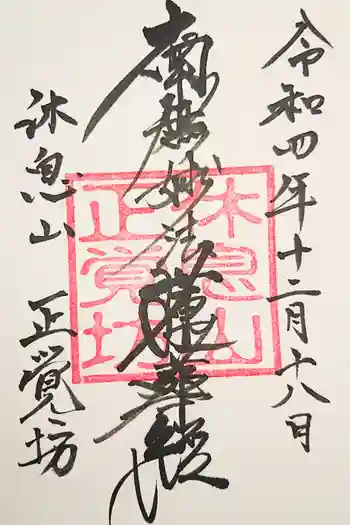 令和四年十二月十八日
南無妙法蓮華経
休息山 正覚坊
休息山
正覚坊